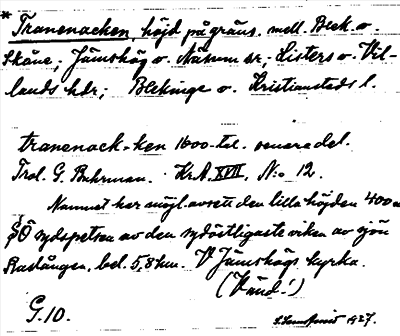 * Tranenacken, höjd på gräns. mell. Blek. o.
Skåne; Jämshög o. Näsum sr.; Listers o. Vil-
lands hdr; Blekinge o. Kristianstads l.
tranenack-ken 1600-tal. senare del.
Trol. G. Buhrman. Kr.A. XVII, N:o 12.
Namnet har möjl. avsett den lilla höjden 400 m
SÖ sydspetsen av den sydöstligaste viken av sjön
Raslången, bel. 5,8 km. V Jämshögs kyrka.
(Vänd!)
G.10.
1927.